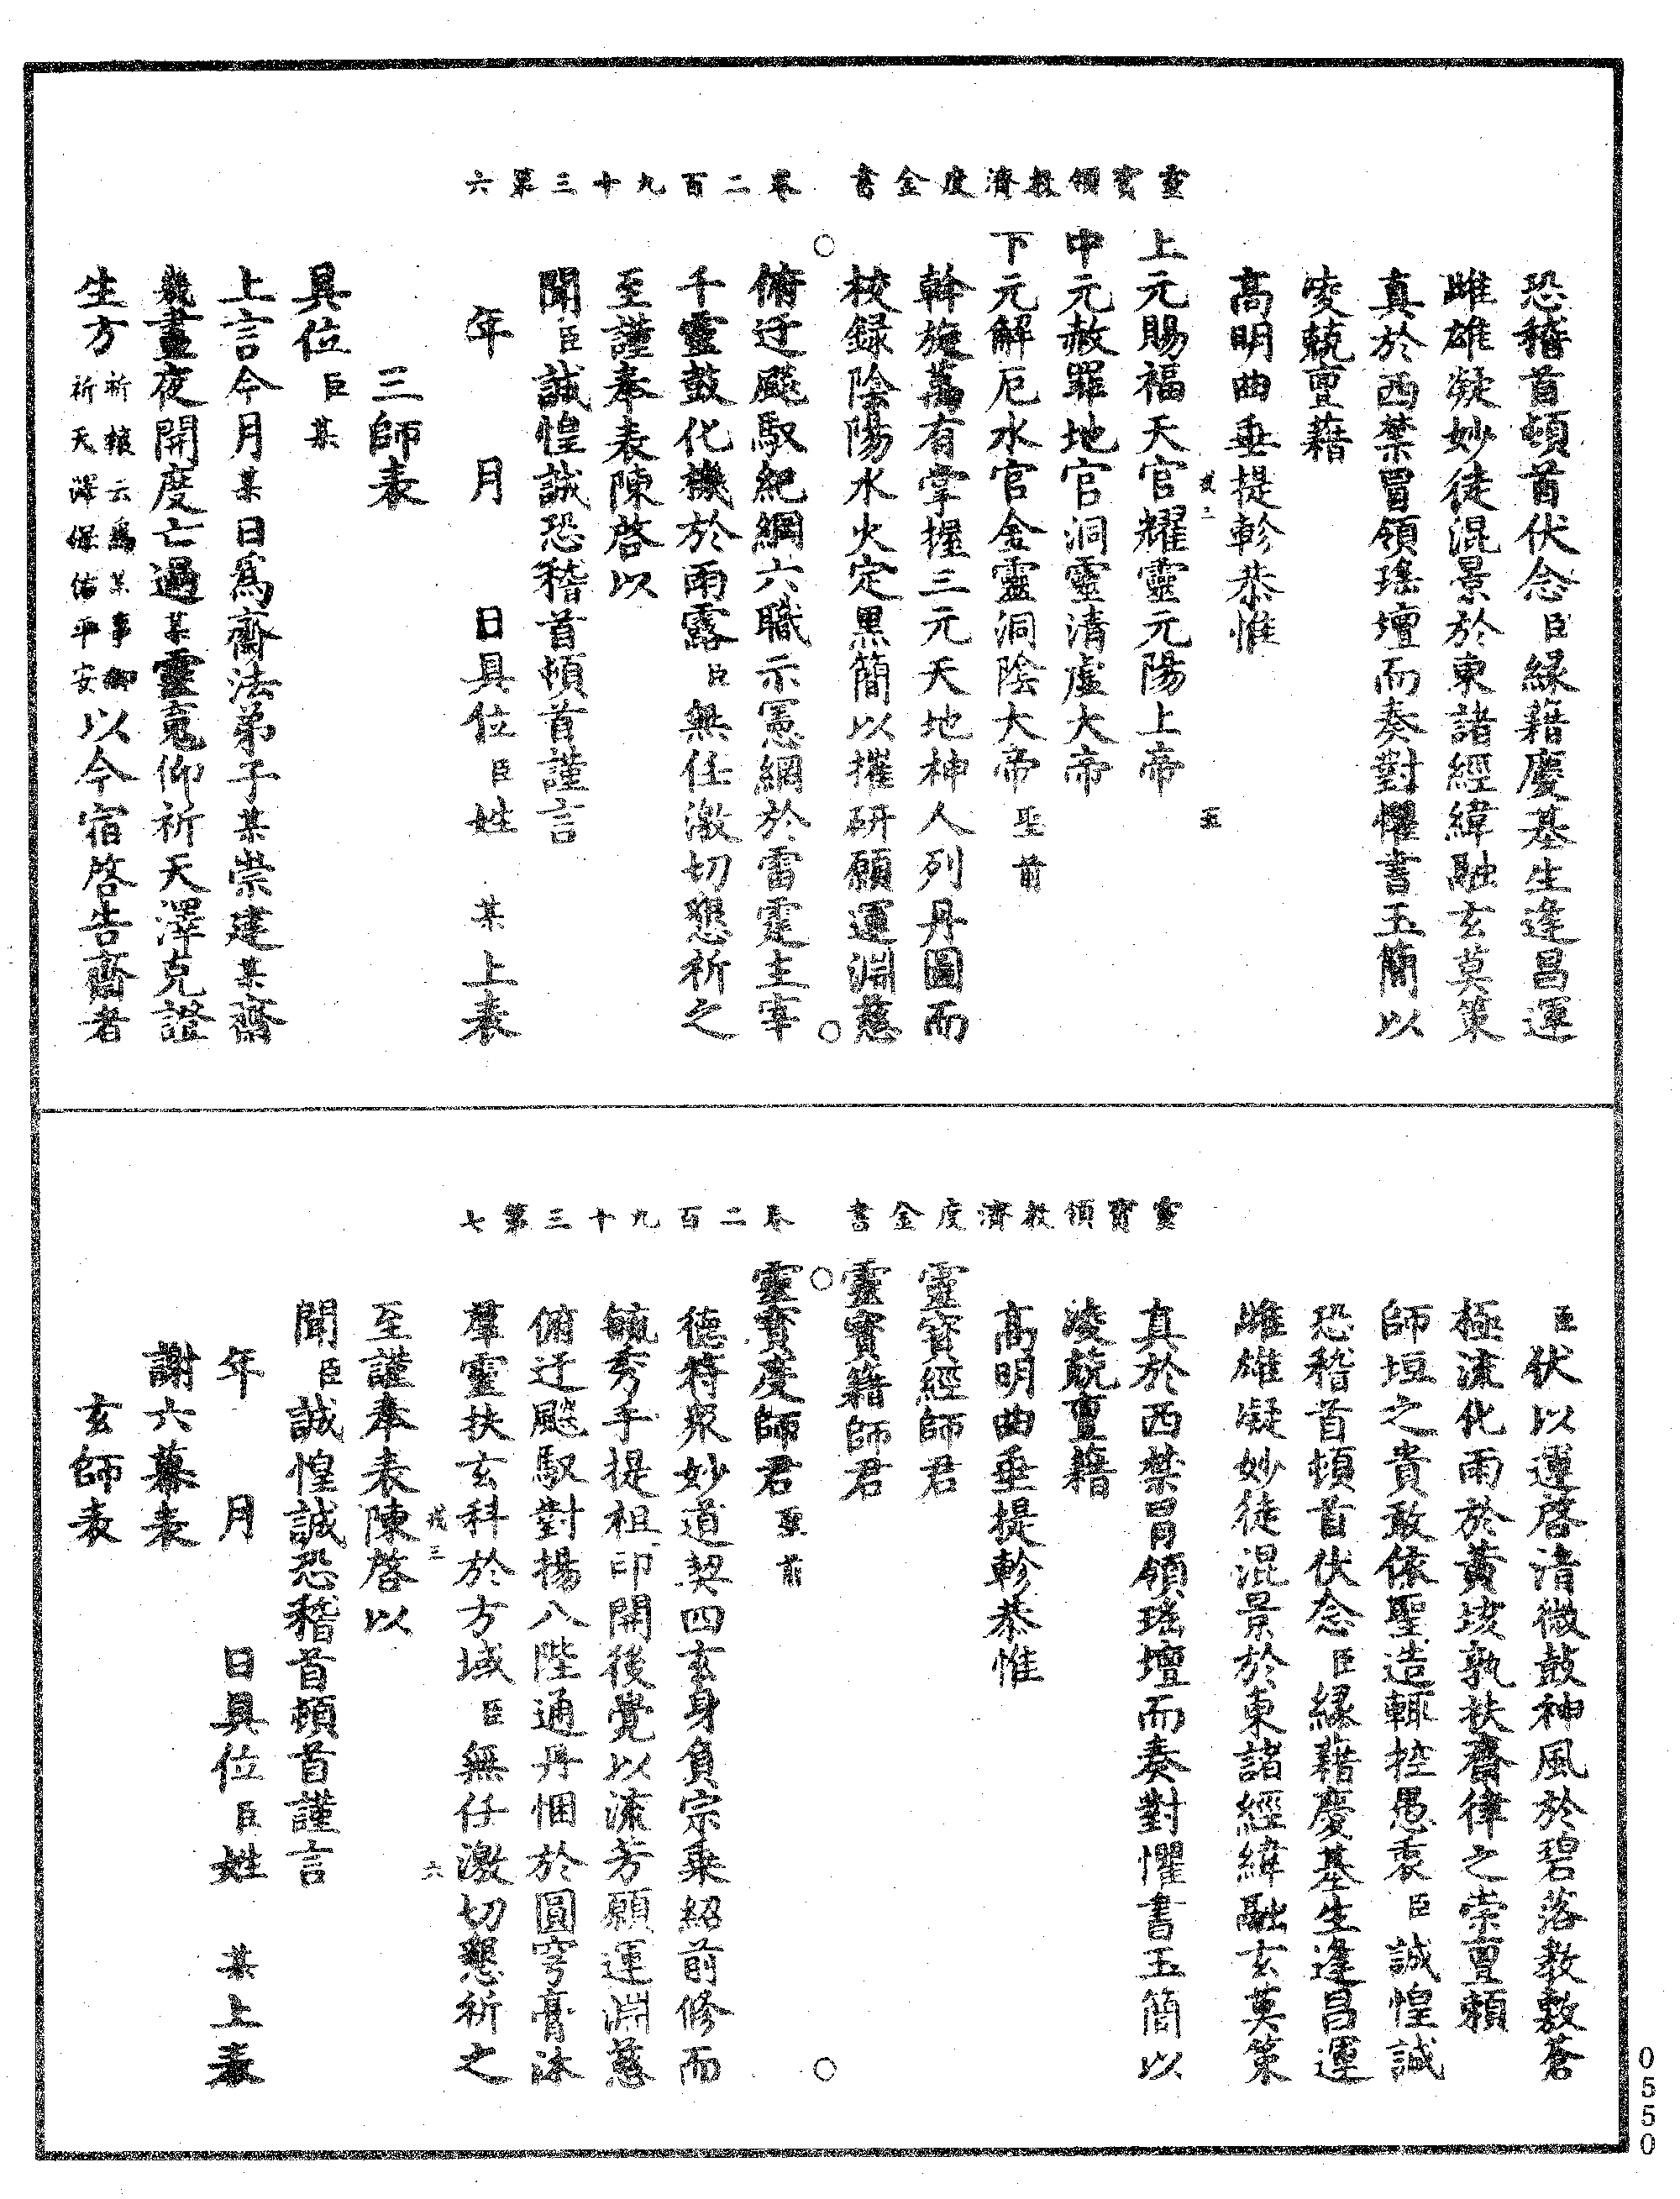 靈寶領教濟度金書　卷二百九十三第六
恐稽首頓首伏念臣緣藉慶基生逢昌運
雌雄凝妙徒混景於東諸經緯融玄莫策
真於西禁冒領瑤壇而奏對懼書玉簡以
凌兢亶藉
高明曲垂提軫恭惟
五
上元賜福天官耀靈元陽上帝
中元赦罪地官洞靈清虛大帝
下元解厄水官金靈洞陰大帝聖前
斡旋萬有掌握三元天地神人列丹圖而
校録陰陽水火定黑簡以摧研願運淵慈
俯迂飈馭紀綱六職示憲綱於雷霆主宰
千靈鼓化機於雨露臣無任激切懇祈之
至謹奉表陳啓以
聞臣誠惶誠恐稽首頓首謹言
年　月　日具位臣姓　某上表
三師表
具位臣某
上言今月某日爲齋法弟子某崇建某齋
幾晝夜開度亡過某靈魂仰祈天澤克證
生方祈禳云爲某事仰祈天澤保佑平安以今宿啓告齋者
靈寶領教濟度金書　卷二百九十三第七
臣伏以運啓清微鼓神風於碧落教敷蒼
極流化雨於黄垓孰扶齋律之崇亶頼
師垣之貴敢依聖造輒控愚衷臣誠惶誠
恐稽首頓首伏念臣緣藉慶基生逢昌運
雌雄凝妙徒混景於東諸經緯融玄莫策
真於西禁冒領瑤壇而奏對懼書玉簡以
凌兢亶藉
高明曲垂提軫恭惟
靈寶經師君
靈寶籍師君
靈寶度師君聖前
德符衆妙道契四玄身負宗乘紹前修而
毓秀手提祖印開後覺以流芳願運淵慈
俯迂飈馭對揚八陛通丹悃於圓穹膏沐
羣靈扶玄科於方域臣無任激切懇祈之
三　六
至謹奉表陳啓以
聞臣誠惶誠恐稽首頓首謹言
年　月　日具位臣姓　某上表
謝六幕表
玄師表
0550